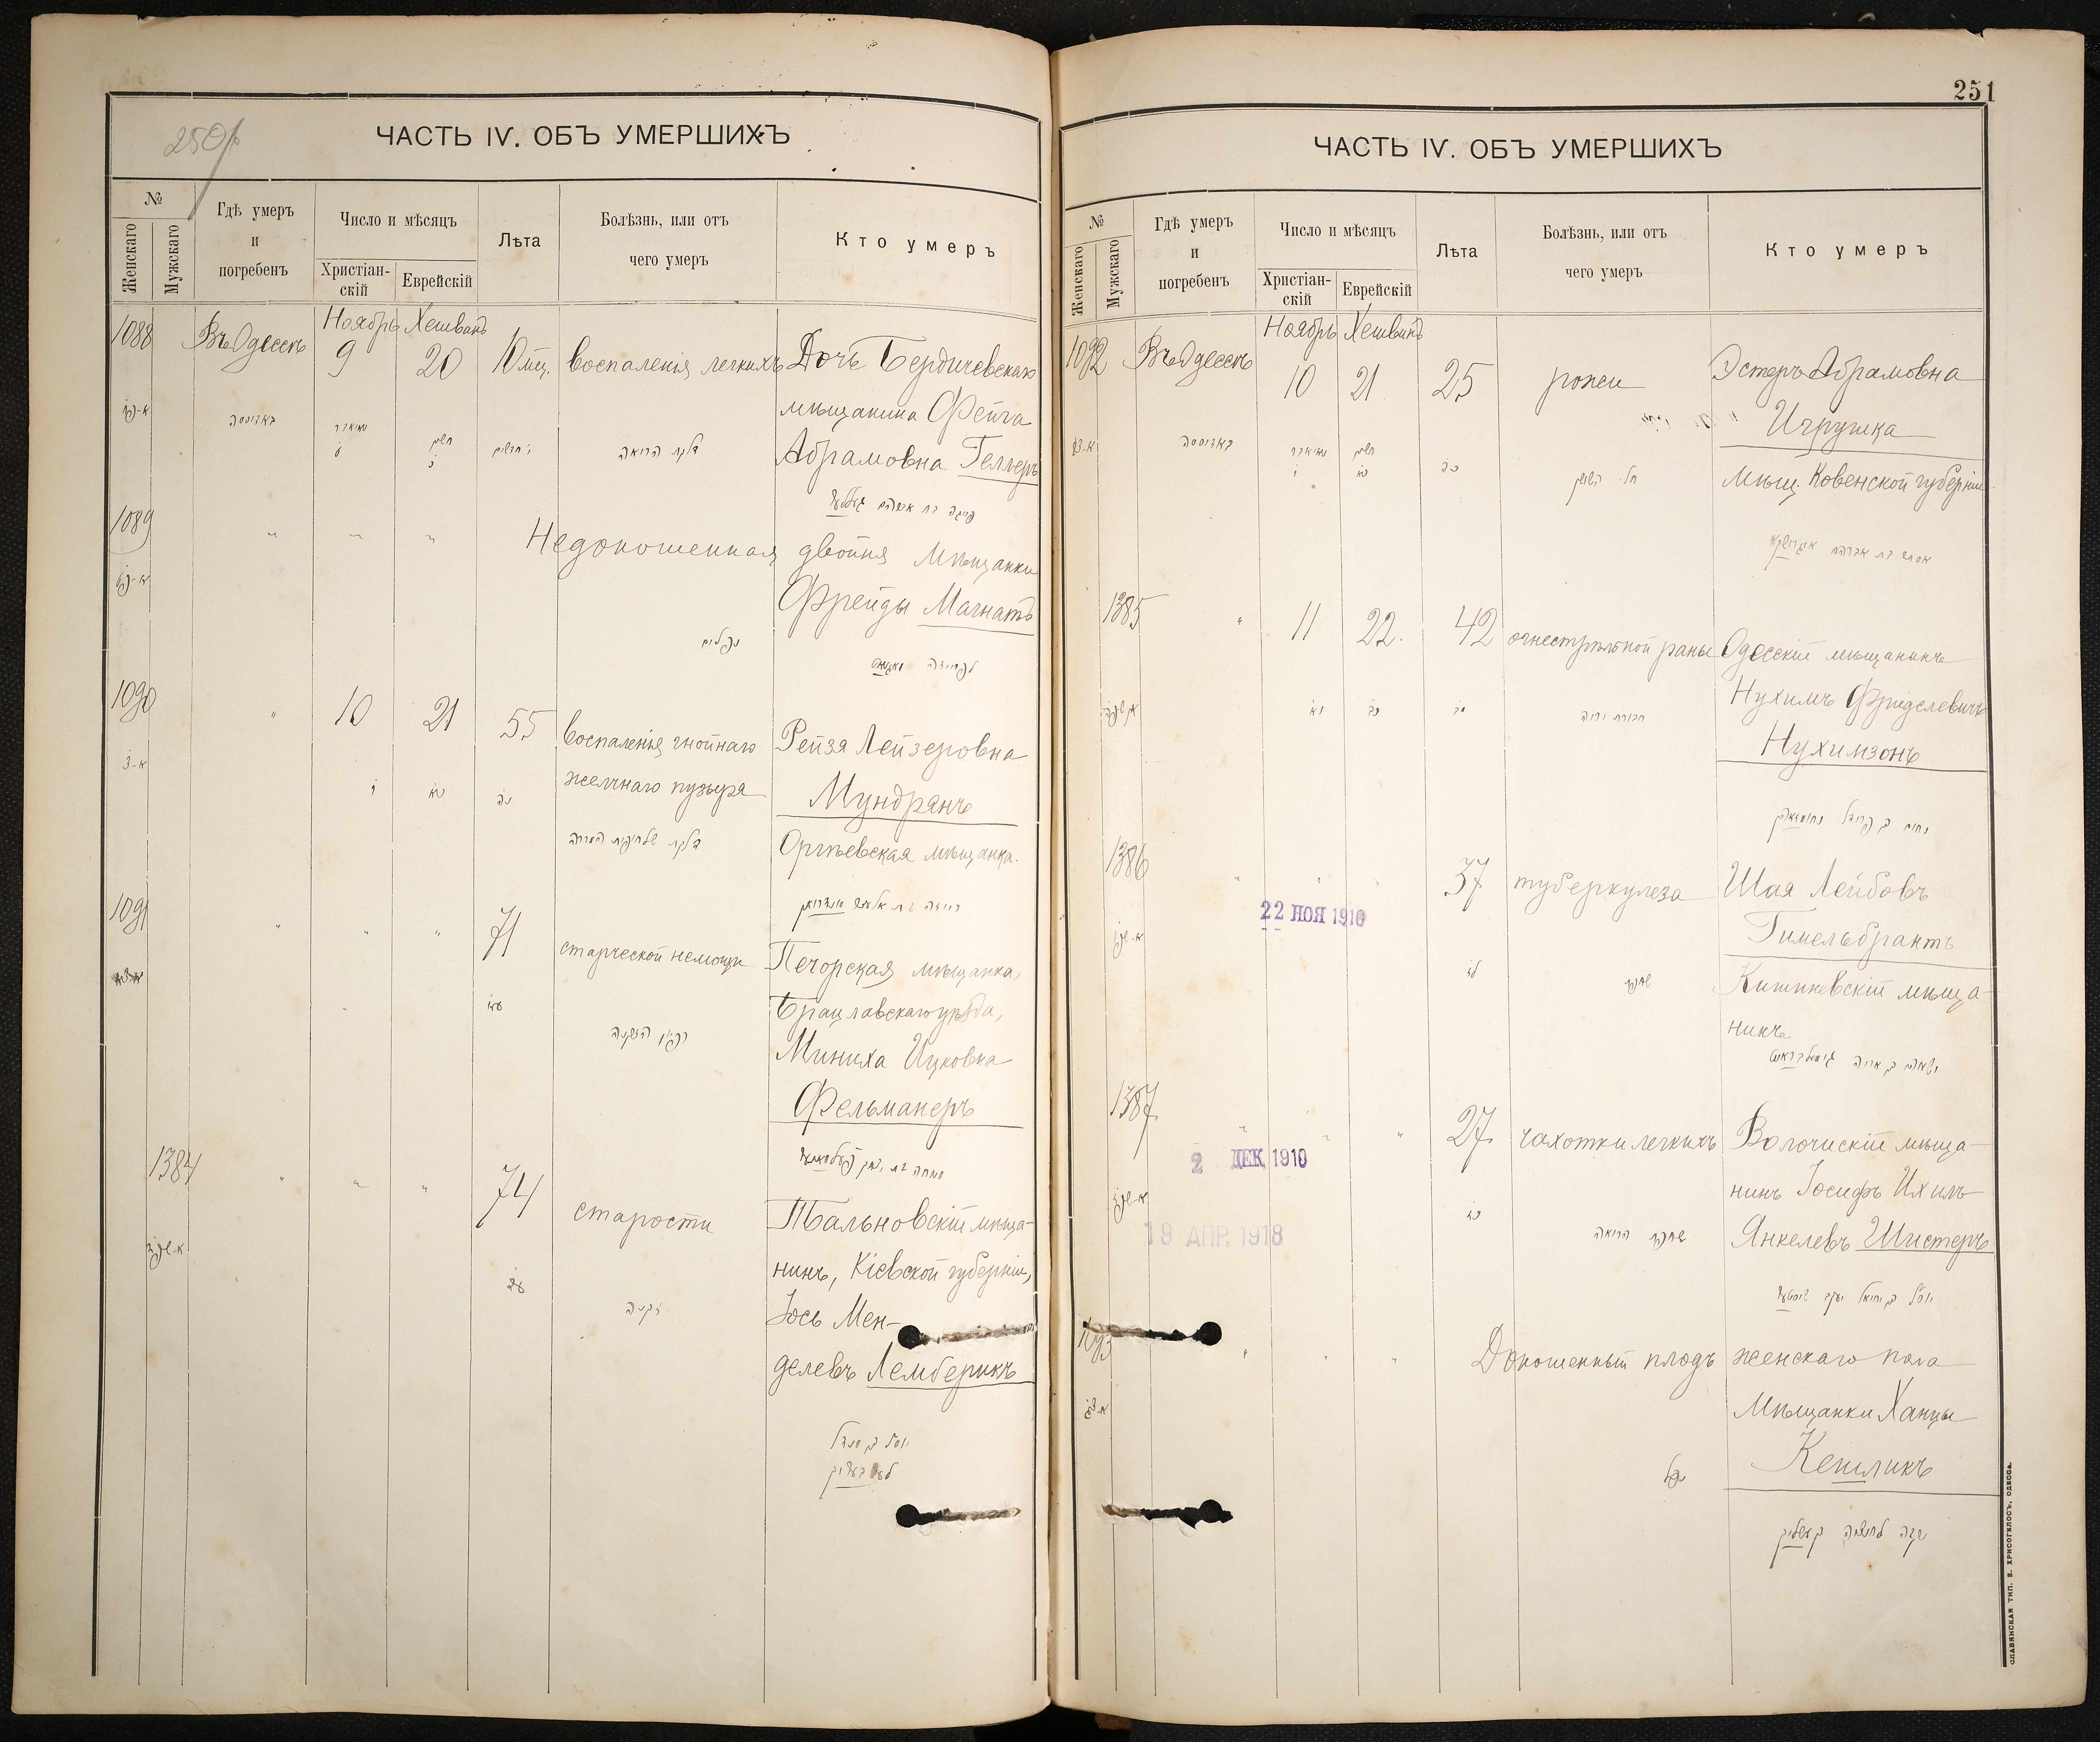 250/
ЧАСТЬ IV. ОБЪ УМЕРШИХЪ
№
Женскаго
Мужскаго
Гдѣ умеръ
и
погребенъ
Число и мѣсяцъ
Христіан-
скій
Еврейскій
Лѣта
Болѣзнь, или отъ
чего умеръ
Кто умеръ
Ноябрь Хешванъ
1088 Въ Одессѣ 9 20 10 мѣс. воспаленія легкихъ Дочь Бердичевскаго
мѣщанина Фейга
Абрамовна Геллеръ
באדיססה
דלקת הריאה
פייגה בת אברהם געללער
1089 " " " Недоношенная двойня мѣщанки
Фрейды Магнатъ
נפלים
לפריידה מאגנאט
1090 " 10 21 55 воспаленія гнойнаго Рейзя Лейзеровна
желчнаго пузыря Мундрянъ
Оргѣевская мѣщанка.
1091 " " " 71 старческой немощи Печорская мѣщанка,
Брацлавскаго уѣзда,
Миниха Ицковна
Фельманеръ
1384 " " " 74 старости Тальновскій мѣща-
нинъ, Кіевской губерніи,
Іось Мен-
делевъ Лемберикъ
זקנה
251
ЧАСТЬ IV. ОБЪ УМЕРШИХЪ
№
Женскаго
Мужскаго
Гдѣ умеръ
и
погребенъ
Число и мѣсяцъ
Христіан-
скій
Еврейскій
Лѣта
Болѣзнь, или отъ
чего умеръ
Кто умеръ
Ноябрь Хешванъ
1092 Въ Одессѣ 10 21 25 рожи Эстеръ Абрамовна
Игрушка
мѣщ. Ковенской губерніи
באדיססה
אסתר בת אברהם איגרושקא
1385 " 11 22. 42 огнестрѣльной раны Одесскій мѣщанинъ
Нухимъ Фриделевичъ
Нухимзонъ
1386 " " " 37 туберкулеза Шая Лейбовъ
22 НОЯ 1910
Гимельбрантъ
Кишиневскій мѣща-
нинъ
1387 " " " 27 чахотки легкихъ Волочискій мѣща-
2 ДЕК. 1910
нинъ Іосифъ Ихилъ
19 АПР. 1918
Янкелевъ Шистеръ
שחפת הריאה
1093 " " " Доношенный плодъ женскаго пола
мѣщанки Ханцы
Кешликъ
נפל
СЛАВЯНСКАЯ ТИП. Е. ХРИСОГЕЛОСЪ, ОДЕССА.